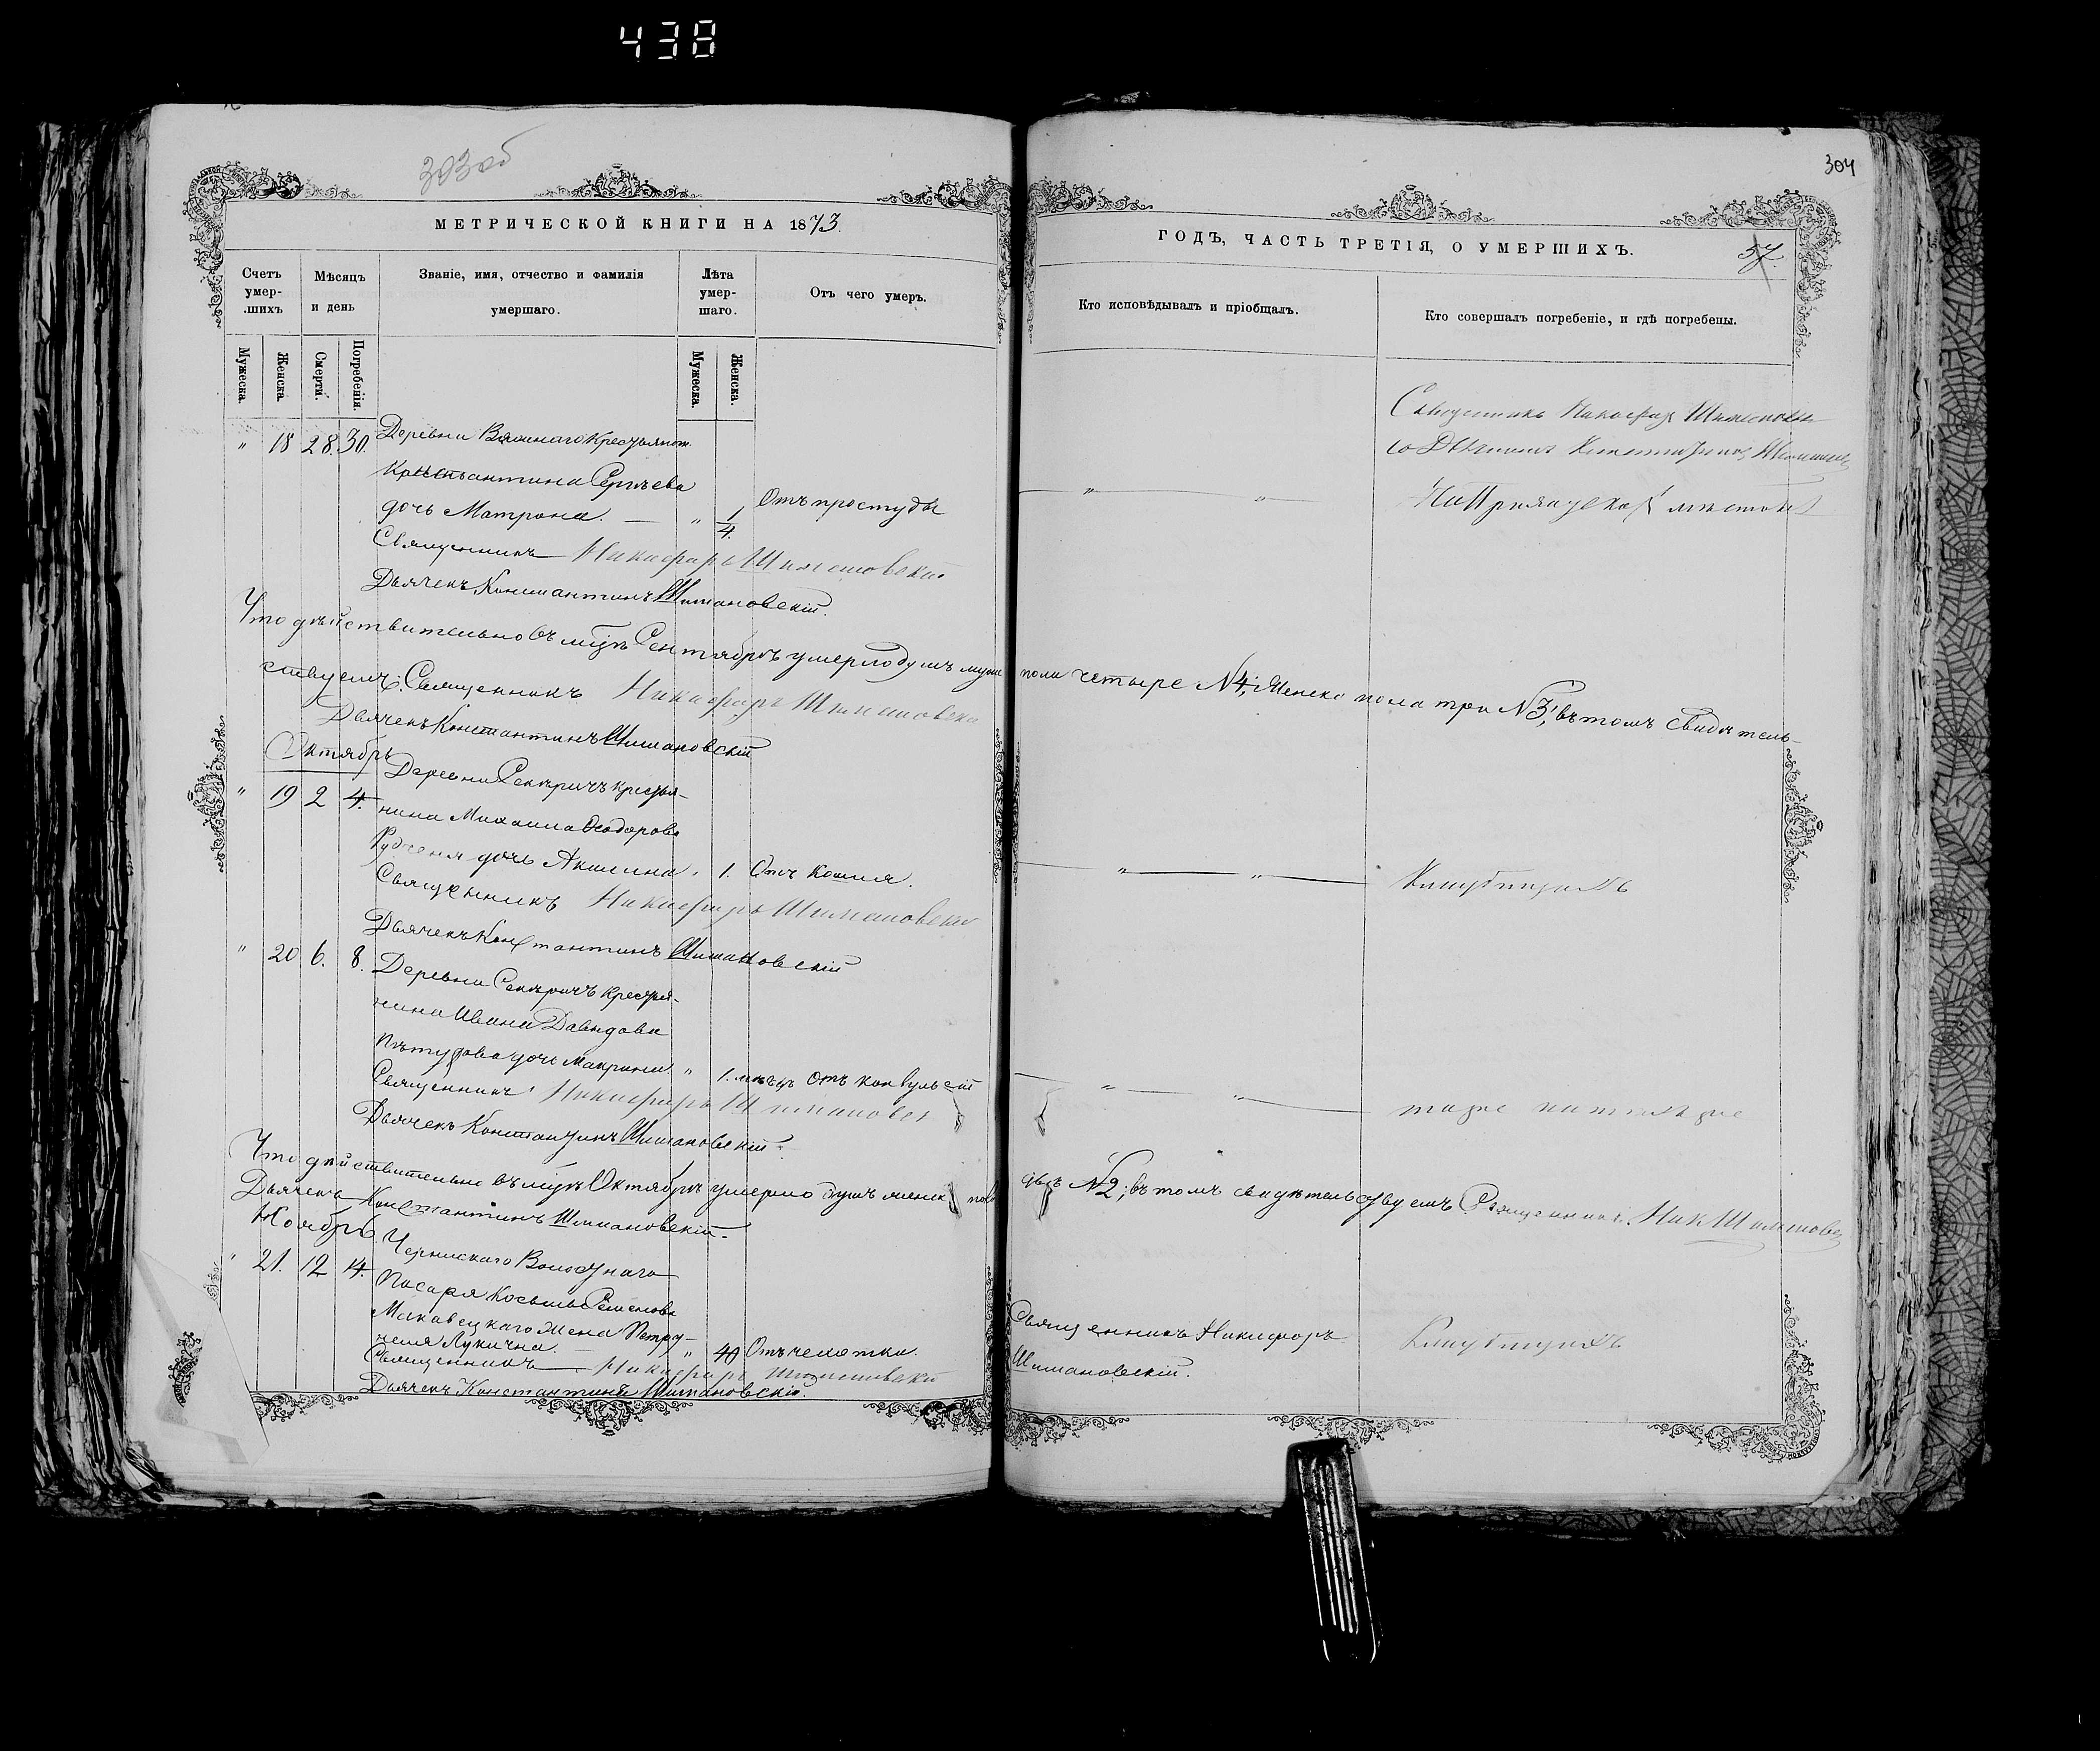 438
303 об
304
МЕТРИЧЕСКОЙ КНИГИ НА 1873.
ГОДЪ, ЧАСТЬ ТРЕТІЯ, О УМЕРШИХЪ.
57.
Счетъ умер-
.шихъ
Мѣсяцъ
и день
Званіе, имя, отчество и фамилія
умершаго.
Лѣта
умер-
шаго.
Отъ чего умеръ.
Кто исповѣдывалъ и пріобщалъ.
Кто совершалъ погребеніе, и гдѣ погребены.
Мужеска.
Женска.
Смерти.
Погребенія.
Мужеска.
Женска.
Священникъ Никифоръ Шимановскій
" 18 28. 30. Деревни
Константина Сергѣева
дочь Матрона. — " 1/4 Отъ простуды
" "
На Приходскомъ
Священникъ Никифоръ Шимановскій
Дьячекъ Константинъ Шимановскій.
Что дѣйствительно въ мцѣ Сентябрѣ умерло душъ муж пола четыре №4; Женска пола три №3; въ томъ свидѣтель-
ствуемъ: Священникъ Никифоръ Шимановскій
Дьячекъ Константинъ Шимановскій
Октябрь
" 19 2 4. Деревни крестья-
нина Михаила Ѳеодорова
дочь Акилина. " 1. Отъ кашля.
" "
Священникъ Никифоръ Шимановскій
Дьячекъ Константинъ Шимановскій
" 20 6. 8. Деревни крестья-
нина Ивана Давидова
дочь Макрина " 1. мѣсъ Отъ конвульсій
" "
Священникъ Никифоръ Шимановскій
Дьячекъ Константинъ Шимановскій.
Что дѣйствительно въ мцѣ Октябрѣ умерло душъ женск пола двѣ №2; въ томъ свидѣтельствуемъ Священникъ Ник Шимановскій
Дьячекъ Константинъ Шимановскій.
Ноябрь
" 21. 12 14. Волостнаго
Писаря Косьмы Семенова
Маковецкаго жена Петру-
неля Лукична. — " 40 Отъ чехотки.
Священникъ Никифоръ
Шимановскій.
Священникъ Никифоръ Шимановскій
Дьячекъ Константинъ Шимановскій.